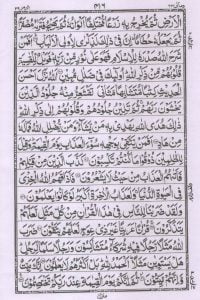 ومالى ٢٣ ٤١٦ الزمر ٣٩
الْاَرْضِ ثُمَّ يُخْرِجُ بِهٖ زَرْعًا مُّخْتَلِفًا اَلْوَانُهٗ ثُمَّ يَهِيْجُ فَتَرٰىهُ مُصْفَرًّا
ثُمَّ يَجْعَلُهٗ حُطَامًا اِنَّ فِيْ ذٰلِكَ لَذِكْرٰى لِاُولِي الْاَلْبَابِ اَفَمَنْ
شَرَحَ اللّٰهُ صَدْرَهٗ لِلْاِسْلَامِ فَهُوَ عَلٰى نُوْرٍ مِّنْ رَّبِّهٖ فَوَيْلٌ لِّلْقٰسِيَةِ
قُلُوْبُهُمْ مِّنْ ذِكْرِ اللّٰهِ اُولٰٓئِكَ فِيْ ضَلٰلٍ مُّبِيْنٍ اَللّٰهُ نَزَّلَ اَحْسَنَ
الْحَدِيْثِ كِتٰبًا مُّتَشَابِهًا مَّثَانِيَ تَقْشَعِرُّ مِنْهُ جُلُوْدُ الَّذِيْنَ
يَخْشَوْنَ رَبَّهُمْ ثُمَّ تَلِيْنُ جُلُوْدُهُمْ وَقُلُوْبُهُمْ اِلٰى ذِكْرِ اللّٰهِ
ذٰلِكَ هُدَى اللّٰهِ يَهْدِيْ بِهٖ مَنْ يَّشَآءُ وَمَنْ يُّضْلِلِ اللّٰهُ فَمَا لَهٗ
مِنْ هَادٍ اَفَمَنْ يَّتَّقِيْ بِوَجْهِهٖ سُوْٓءَ الْعَذَابِ يَوْمَ الْقِيٰمَةِ وَقِيْلَ
لِلظّٰلِمِيْنَ ذُوْقُوْا مَا كُنْتُمْ تَكْسِبُوْنَ كَذَّبَ الَّذِيْنَ مِنْ قَبْلِهِمْ
فَاَتٰىهُمُ الْعَذَابُ مِنْ حَيْثُ لَا يَشْعُرُوْنَ فَاَذَاقَهُمُ اللّٰهُ الْخِزْيَ
فِي الْحَيٰوةِ الدُّنْيَا وَلَعَذَابُ الْاٰخِرَةِ اَكْبَرُ لَوْ كَانُوْا يَعْلَمُوْنَ
وَلَقَدْ ضَرَبْنَا لِلنَّاسِ فِيْ هٰذَا الْقُرْاٰنِ مِنْ كُلِّ مَثَلٍ لَّعَلَّهُمْ
يَتَذَكَّرُوْنَ قُرْاٰنًا عَرَبِيًّا غَيْرَ ذِيْ عِوَجٍ لَّعَلَّهُمْ يَتَّقُوْنَ ضَرَبَ
اللّٰهُ مَثَلًا رَّجُلًا فِيْهِ شُرَكَآءُ مُتَشَاكِسُوْنَ وَرَجُلًا سَلَمًا لِّرَجُلٍ
هَلْ يَسْتَوِيٰنِ مَثَلًا اَلْحَمْدُ لِلّٰهِ بَلْ اَكْثَرُهُمْ لَا يَعْلَمُوْنَ اِنَّكَ مَيِّتٌ
وَّاِنَّهُمْ مَّيِّتُوْنَ ثُمَّ اِنَّكُمْ يَوْمَ الْقِيٰمَةِ عِنْدَ رَبِّكُمْ تَخْتَصِمُوْنَ